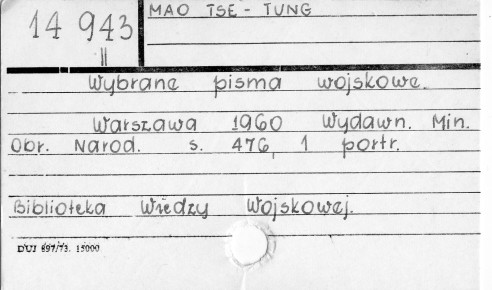 14 943
II
MAO TSE-TUNG
Wybrane pisma wojskowe.
Warszawa 1960 Wydawn. Min.
Obr. Narod. s. 476, 1 portr.
Biblioteka Wiedzy Wojskowej.
DUJ 697/73. 15000